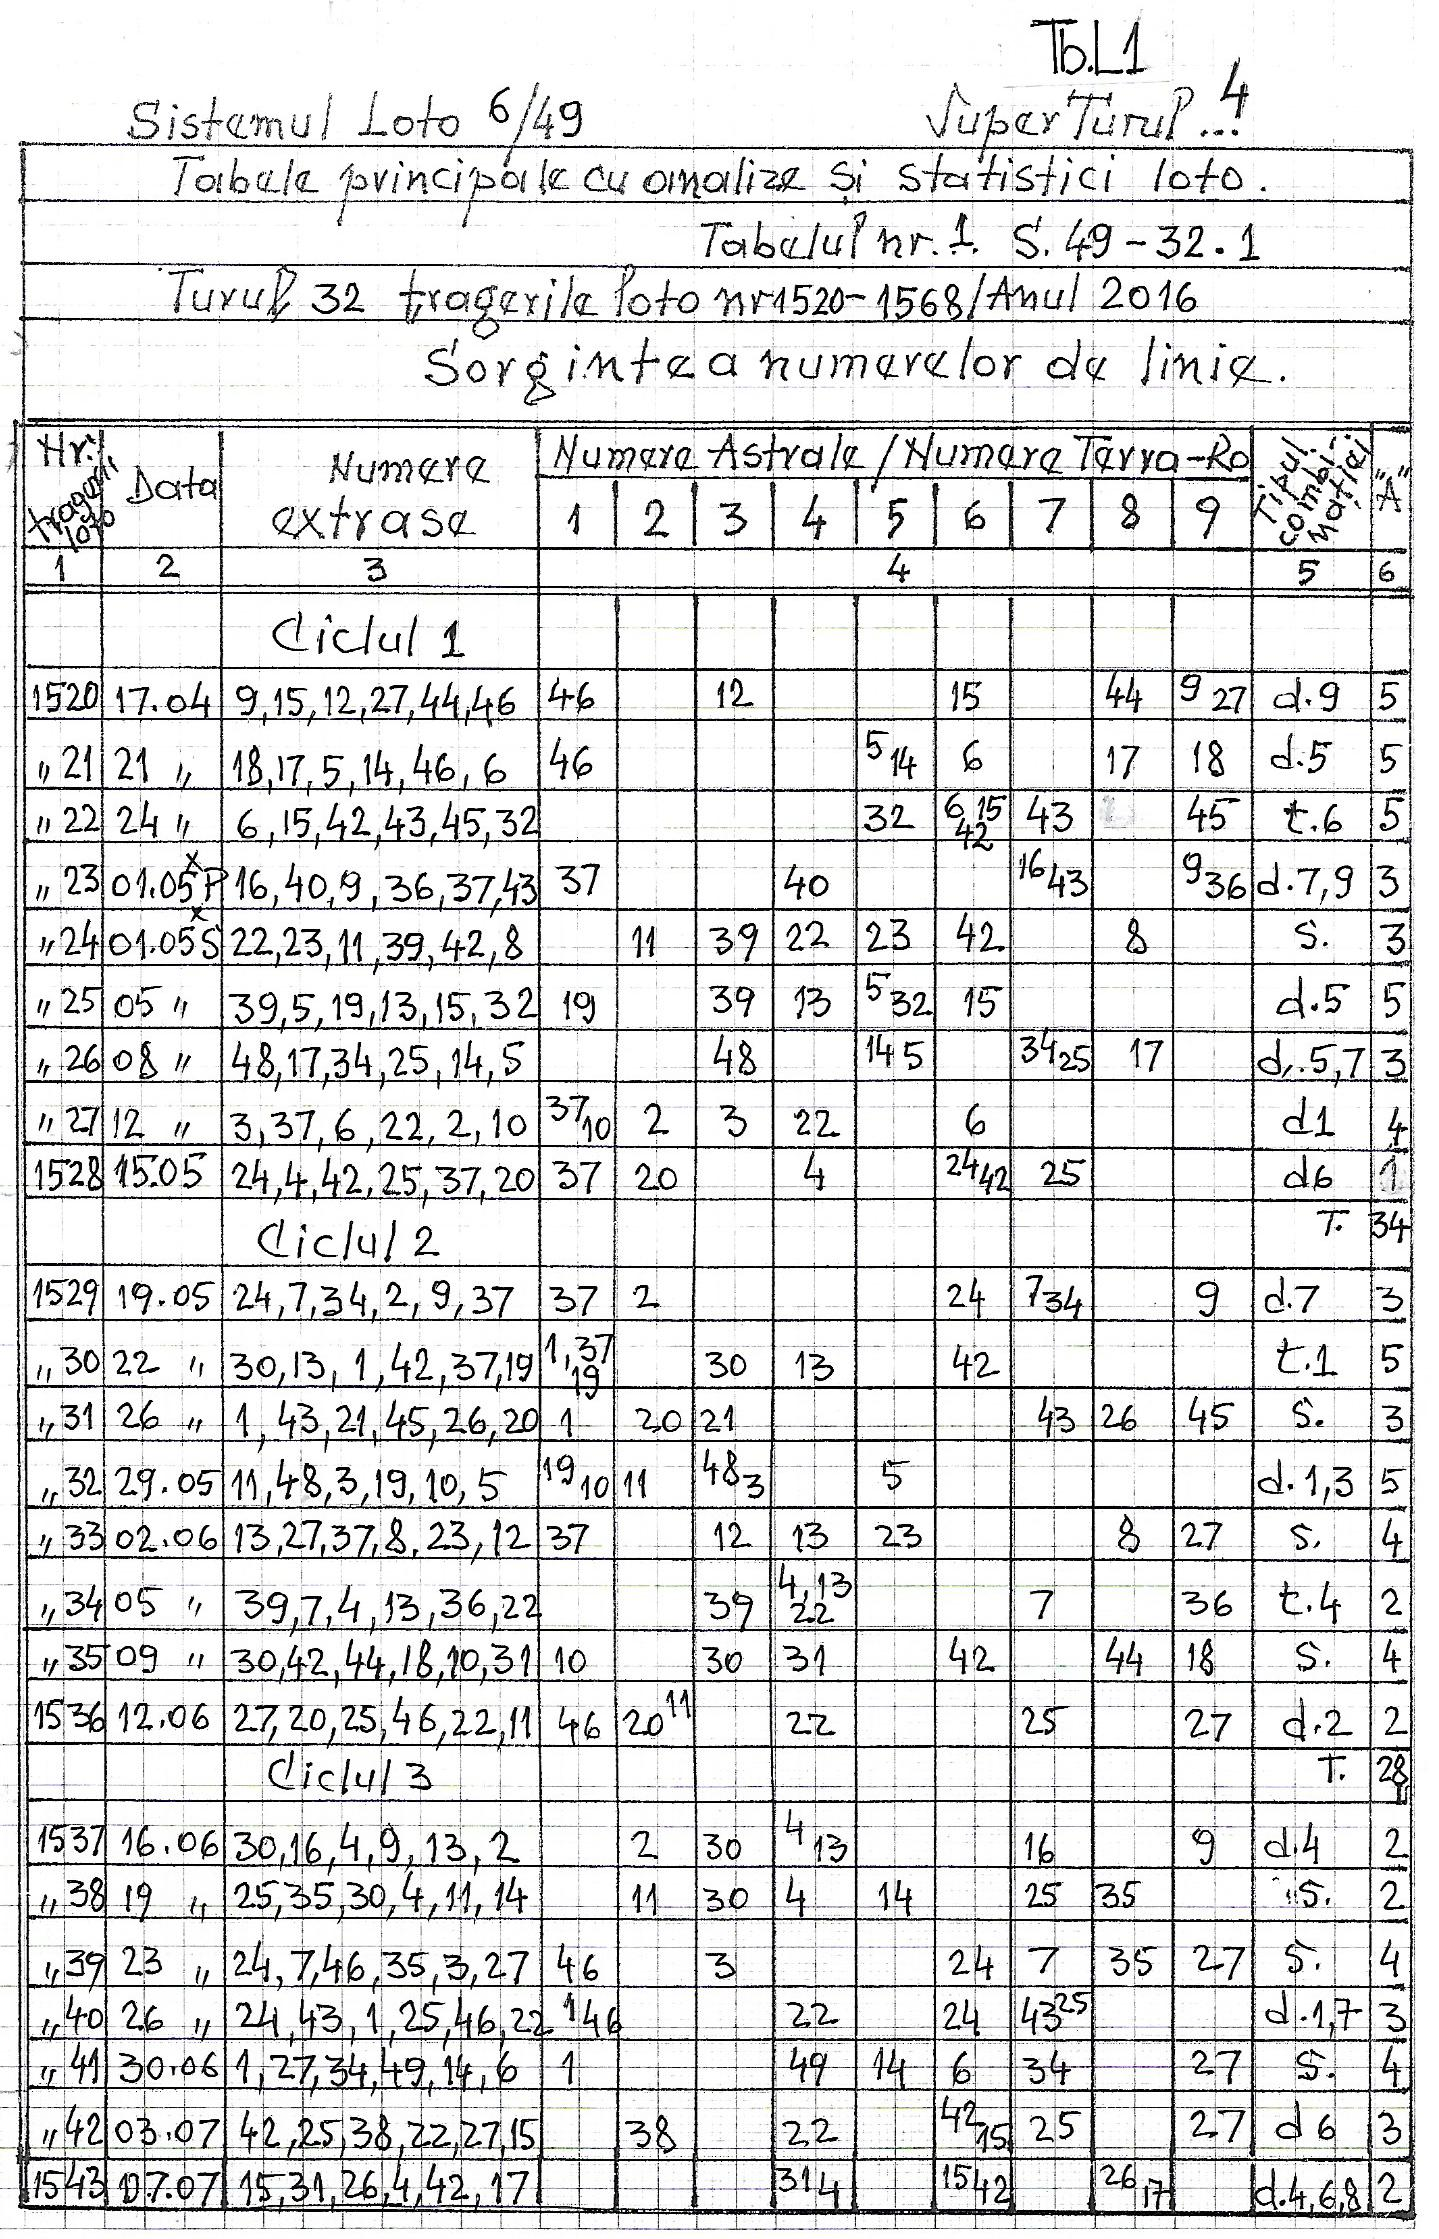 Tb.L1
Sistemul Loto 6/49 SuperTurul...4
Tabele principale cu analize și statistici loto.
Tabelul nr.1. S.49-32.1
Turul 32 tragerile loto nr1520-1568/Anul 2016
Sorgintea numerelor de linie.
Nr. tragerii loto Data Numere extrase Numere Astrale/Numere Terra-Ro Tipul combinației "A"
1 2 3 4 5 6 7 8 9
1 2 3 4 5 6
Ciclul 1
1520 17.04 9,15,12,27,44,46 46 12 15 44 9 27 d.9 5
„21 21 „ 18,17,5,14,46,6 46 5 14 6 17 18 d.5 5
„22 24 „ 6,15,42,43,45,32 32 6,15 42 43 45 t.6 5
„23 01.05xP 16,40,9,36,37,43 37 40 16 43 9 36 d.7,9 3
„24 01.05xS 22,23,11,39,42,8 11 39 22 23 42 8 S. 3
„25 05 „ 39,5,19,13,15,32 19 39 13 5 32 15 d.5 5
„26 08 „ 48,17,34,25,14,5 48 14 5 34 25 17 d.5,7 3
„27 12 „ 3,37,6,22,2,10 37 10 2 3 22 6 d1 4
1528 15.05 24,4,42,25,37,20 37 20 4 24 42 25 d6 1
Ciclul 2 T. 34
1529 19.05 24,7,34,2,9,37 37 2 24 7 34 9 d.7 3
„30 22 „ 30,13,1,42,37,19 1,37 19 30 13 42 t.1 5
„31 26 „ 1,43,21,45,26,20 1 20 21 43 26 45 S. 3
„32 29.05 11,48,3,19,10,5 19 10 11 48 3 5 d.1,3 5
„33 02.06 13,27,37,8,23,12 37 12 13 23 8 27 S. 4
„34 05 „ 39,7,4,13,36,22 39 4,13 22 7 36 t.4 2
„35 09 „ 30,42,44,18,10,31 10 30 31 42 44 18 S. 4
1536 12.06 27,20,25,46,22,11 46 20 11 22 25 27 d.2 2
Ciclul 3 T. 28
1537 16.06 30,16,4,9,13,2 2 30 4 13 16 9 d.4 2
„38 19 „ 25,35,30,4,11,14 11 30 4 14 25 35 S. 2
„39 23 „ 24,7,46,35,3,27 46 3 24 7 35 27 S. 4
„40 26 „ 24,43,1,25,46,22 1 46 22 24 43 25 d.1,7 3
„41 30.06 1,27,34,49,14,6 1 49 14 6 34 27 S. 4
„42 03.07 42,25,38,22,27,15 38 22 42 15 25 27 d6 3
1543 07.07 15,31,26,4,42,17 31 4 15 42 26 17 d.4,6,8 2